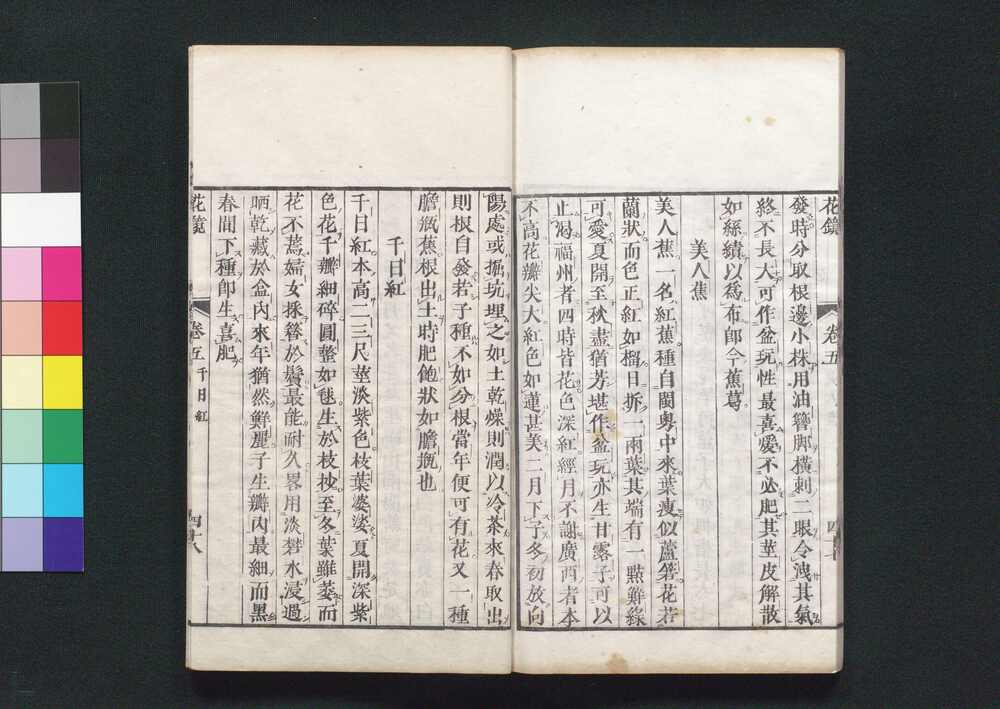 花鏡 卷五 四十七
發時分取根邊小株用油簪脚橫刺二眼令洩其氣
終不長大可作盆玩性最喜愛不必肥其莖皮解散
如絲績以爲布卽今蕉葛
美人蕉
美人蕉一名紅蕉種自閩粵中來葉瘦似蘆箬花若
蘭狀而色正紅如榴日拆一兩葉其端有一點鮮綠
可愛夏開至秋盡猶芳堪作盆玩亦生甘露子可以
止渴福州者四時皆花色深紅經月不謝廣西者本
不高花瓣尖大紅色如蓮甚美二月下子冬初放向
陽處或掘坑埋之如土乾燥則潤以冷茶來春取出
則根自發若子種不如分根當年便可有花又一種
膽瓶蕉根出土時肥飽狀如膽瓶也
千日紅
千日紅本高二三尺莖淡紫色枝葉婆娑夏開深紫
色花千瓣細碎圓整如毬生於枝杪至冬葉雖萎而
花不蔫婦女採簪於鬢最能耐久畧用淡礬水浸過
晒乾藏於盒內來年猶然鮮麗子生瓣內最細而黑
春間下種卽生喜肥
花鏡 卷五 千日紅 四十八